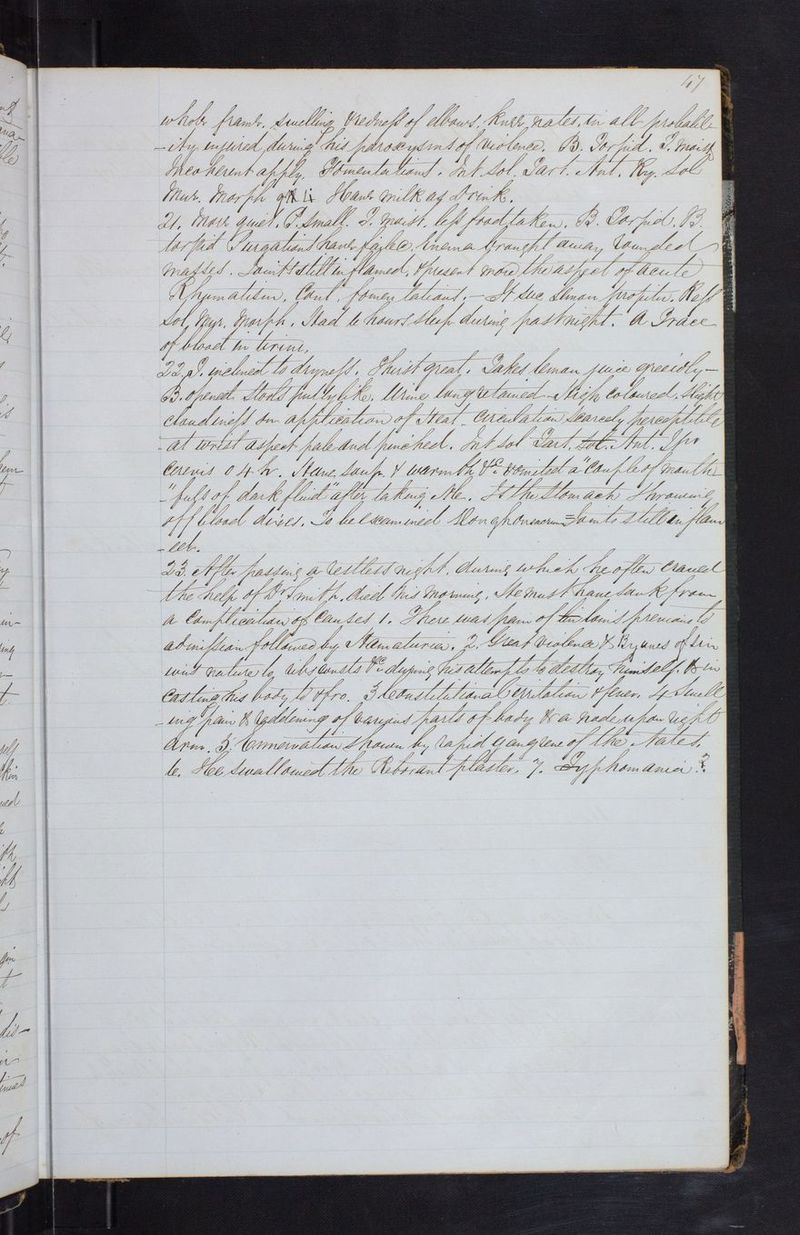 47
whole frame. Swelling & redness of elbows, knees, nates, in all probabil
-ity injured during his paroxysms of violence. B. Torpid. T. moist
Incoherent apply. Fomentations. Int. Sol. Tart. Ant. Rx. Sol
Mur. Morph g Have milk as drink.
21. More quiet. P. small. T. moist. less food taken. B. Torpid. B.
torpid Purgations have failed, enema brought away rounded
masses. Joints still inflamed, & present more the aspect of acute
Rheumatism. Cont. fomentations. - St Suc Limon propotu. Rept
Sol. Mur. Morph. Had 6 hours sleep during past night. A Trace
of blood in urine.
22. T. inclined to dryness. Thirst great. Takes lemon juice greedily -
B. opened. Stools puttylike. Urine long retained - High coloured, slight
cloudiness on application of Heat - Circulation scarcely perceptible
- at wrist aspect pale and pinched. Int Sol Tart. Ant. Spr
Cerevis 4 hr. Have soup & warmth &c. Vomited a "couple of mouth
"fulls of dark fluid" after taking Ale. Is the Stomach throwing
off blood discs. To be examined Joints still inflam
-ed.
23. After passing a restless night, during which he often craved
the help of Dr Smith. died this morning. He must have sunk from
a complication of causes 1. There was pain of loins previous to
admission followed by Hæmaturia. 2. Great violence & Bruises of
nature to ribs wrists &c during his attempts to destroy himself. & in
casting his body to & fro. 3 Constitutional irritation & fever. 4 Swell
-ing pain & reddening of various parts of body & a node upon right
arm. 5. Ennervation shown by rapid gangrene of the Nates.
6. He swallowed the Roborant plaster. 7. Typhomania?